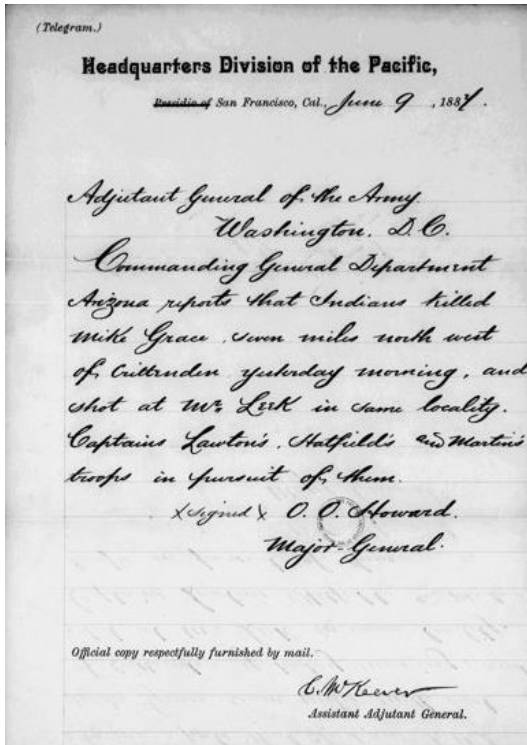 (Telegram.)
Headquarters Division of the Pacific,
Presidio of San Francisco, Cal., June 9, 1887.
Adjutant General of the Army.
Washington. D.C.
Commanding General Department
Arizona reports that Indians killed
Mike Grace, seven miles north west
of, Crittenden yesterday morning, and
shot at Mr. Leek in same locality.
Captains Lawton's, Hatfield's and Martin's
troops in pursuit of them.
(signed) O. O. Howard.
Major-General.
Official copy respectfully furnished by mail.
C. McKeever
Assistant Adjutant General.